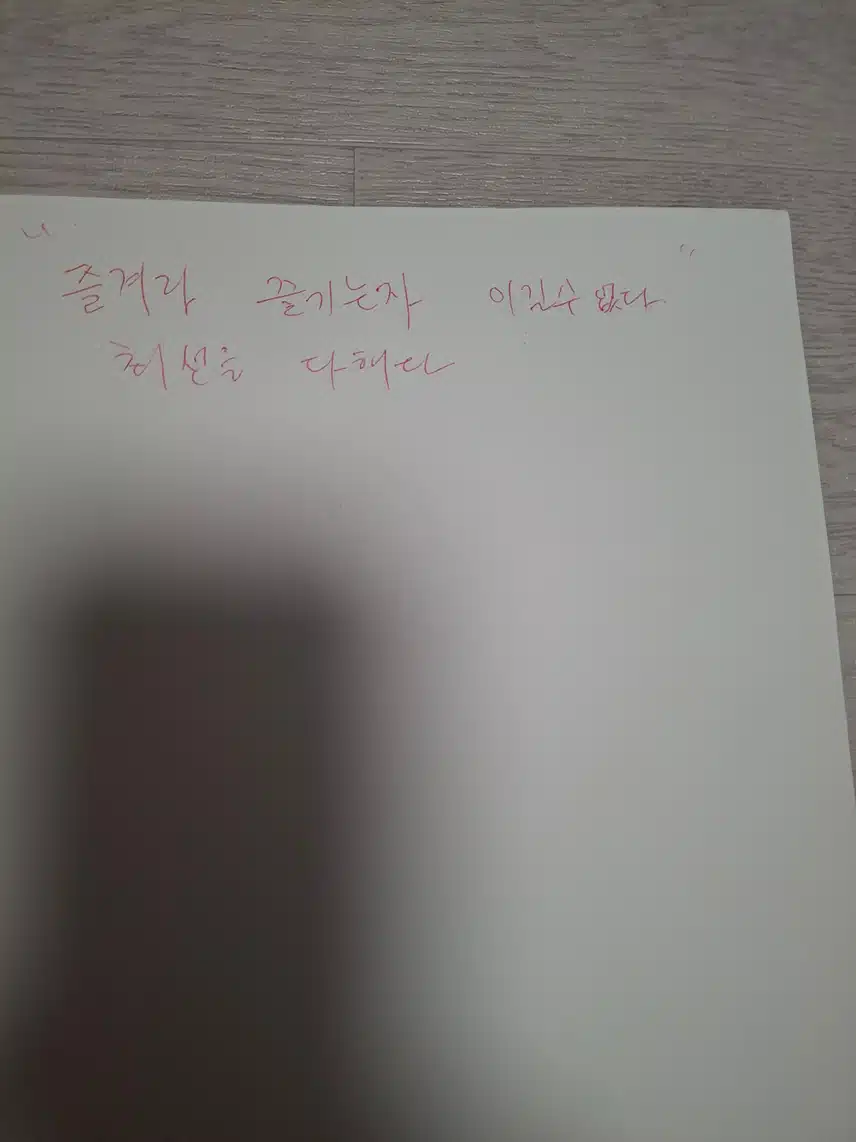 "즐겨라 즐기는자 이길수 없다"
최선을 다해라